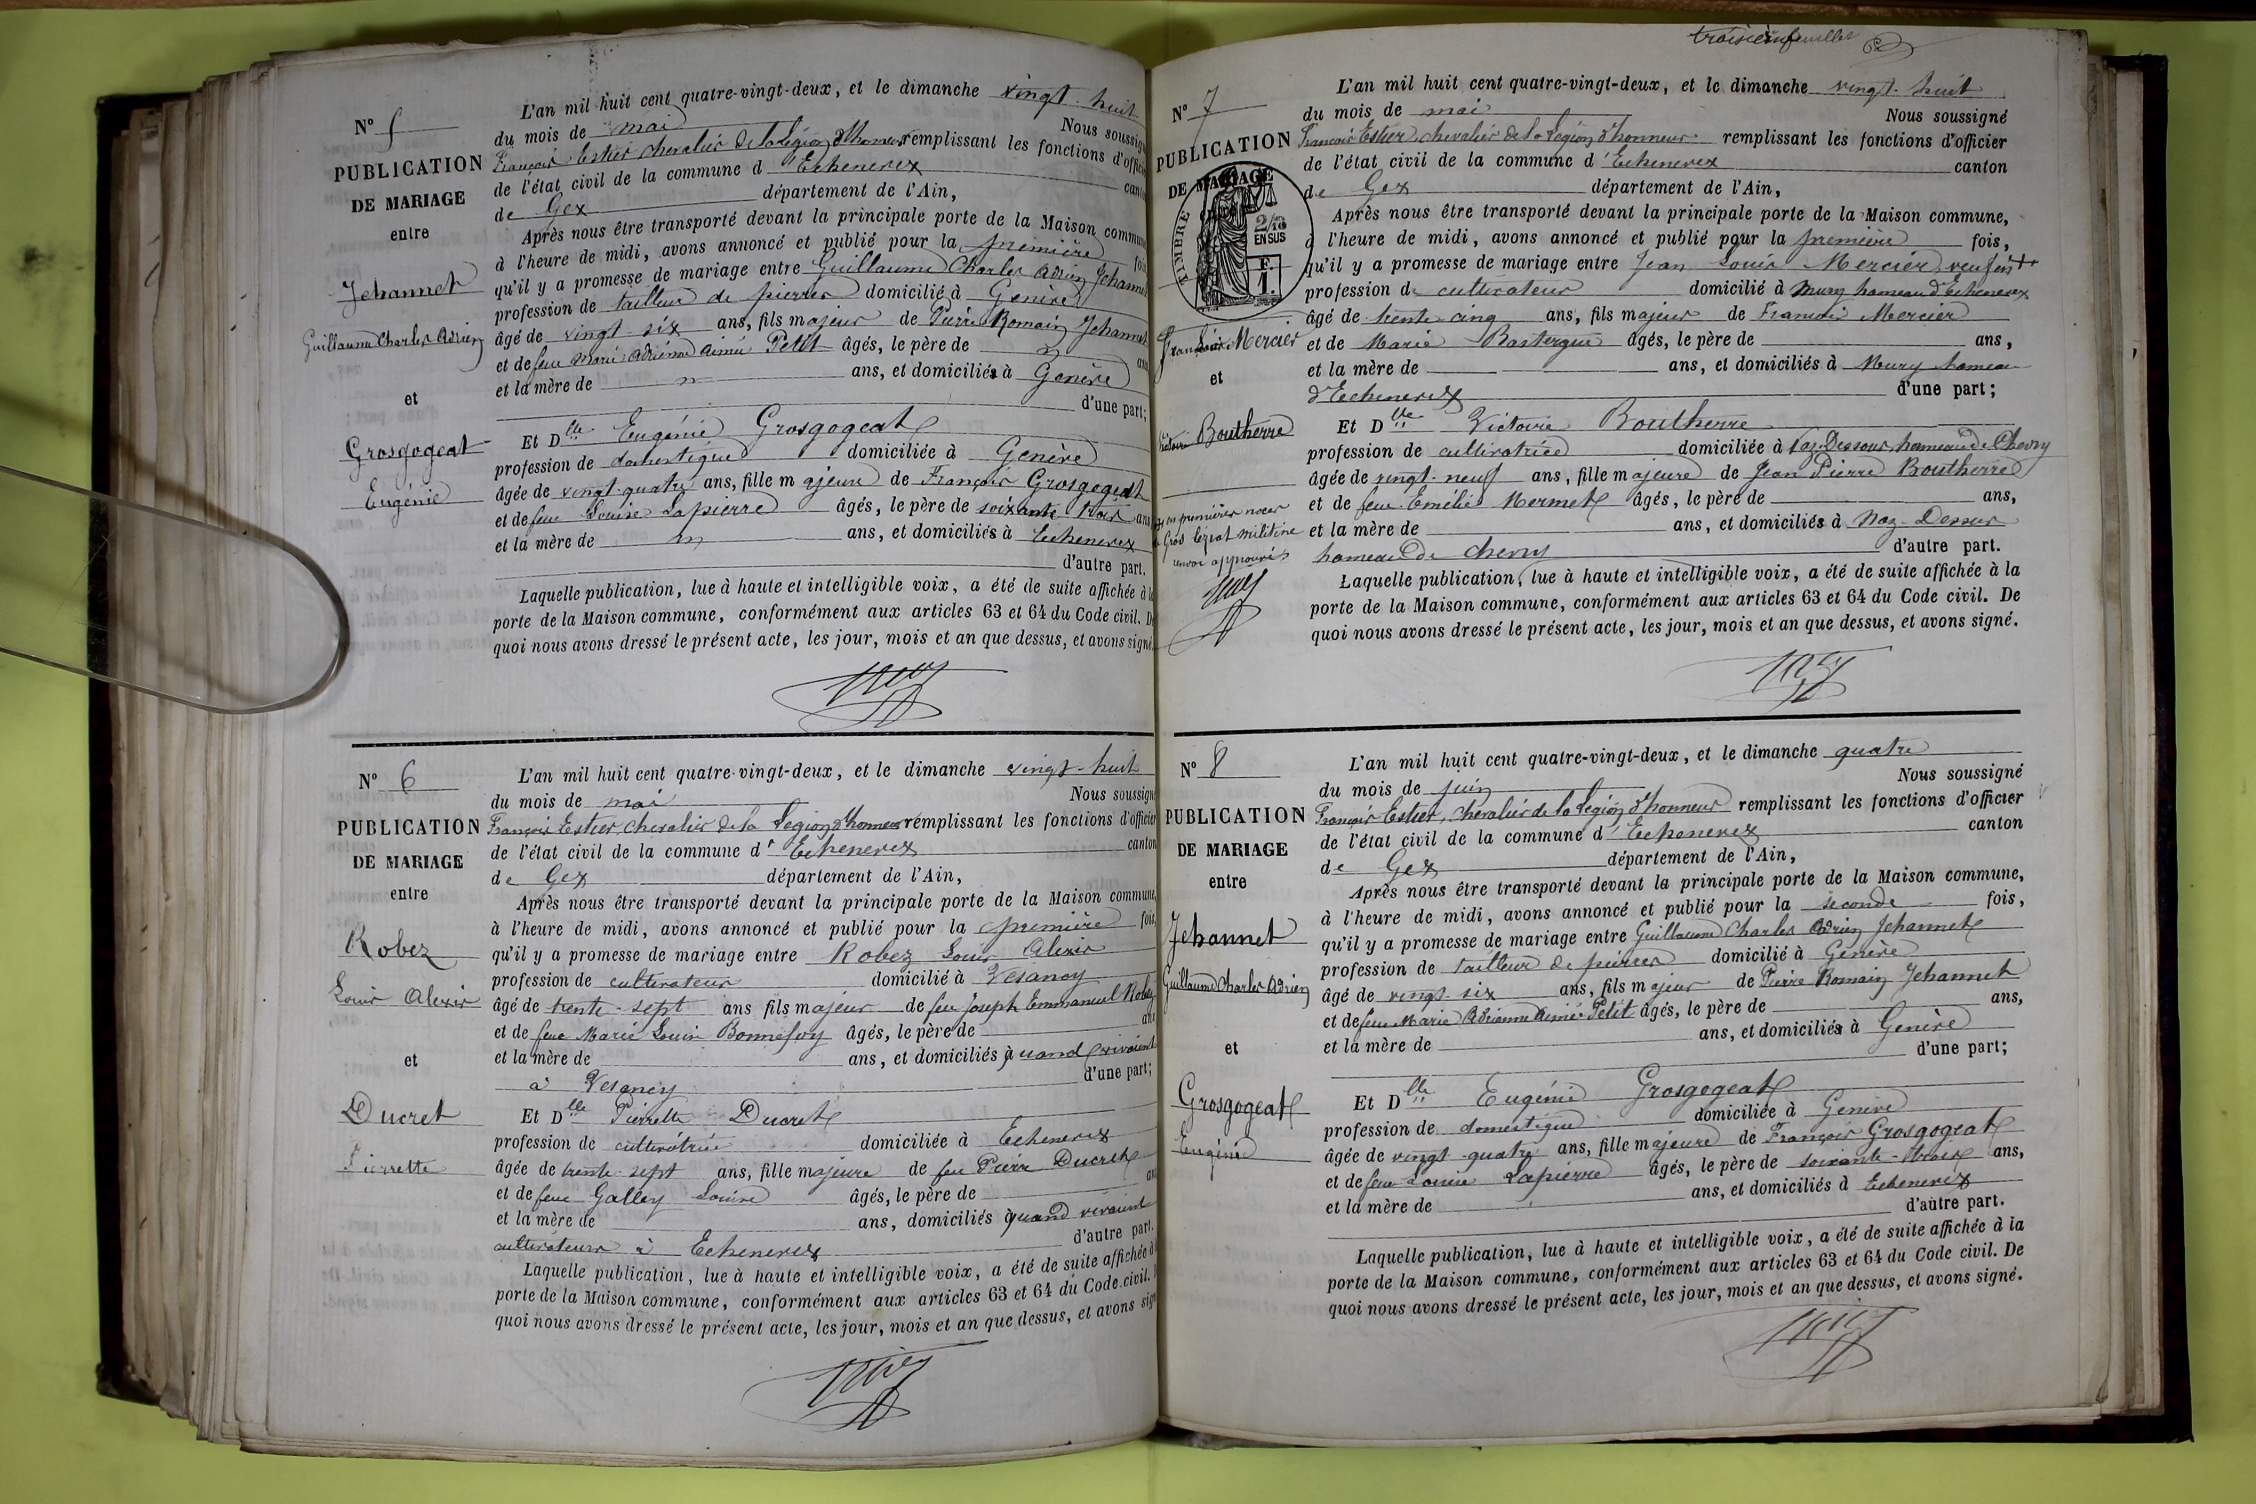 N° 5
PUBLICATION
DE MARIAGE
entre
Jehannet
Guillaume Charles Adrien
et
Grosgogeat
Eugénie
L'an mil huit cent quatre-vingt-deux, et le dimanche vingt-huit
du mois de mai Nous soussign
François Estier chevalier de la Légion d'honneur remplissant les fonctions d'offici
de l'état civil de la commune d'Echenevex canto
de Gex département de l'Ain,
Après nous être transporté devant la principale porte de la Maison commun
à l'heure de midi, avons annoncé et publié pour la première foi
qu'il y a promesse de mariage entre Guillaume Charles Adrien Jehannet
profession de tailleur de pierres domicilié à Genève
âgé de vingt-six ans, fils majeur de Pierre Romain Jehannet
et de feue Marie Adrienne Aimée Petit âgés, le père de an
et la mère de ans, et domiciliés à Genève
d'une part;
Et Dlle Eugénie Grosgogeat
profession de domestique domiciliée à Genève
âgée de vingt-quatre ans, fille majeure de François Grosgogeat
et de feue Louise Lapierre âgés, le père de soixante trois ans
et la mère de ans, et domiciliés à Echenevex
d'autre part.
Laquelle publication, lue à haute et intelligible voix, a été de suite affichée à l
porte de la Maison commune, conformément aux articles 63 et 64 du Code civil. D
quoi nous avons dressé le présent acte, les jour, mois et an que dessus, et avons signé
N° 6
PUBLICATION
DE MARIAGE
entre
Robez
Louis Alexis
et
Ducret
Pierrette
L'an mil huit cent quatre-vingt-deux, et le dimanche vingt-huit
du mois de mai Nous soussign
François Estier chevalier de la Légion d'honneur remplissant les fonctions d'officier
de l'état civil de la commune d'Echenevex canton
de Gex département de l'Ain,
Après nous être transporté devant la principale porte de la Maison commune,
à l'heure de midi, avons annoncé et publié pour la première fois,
qu'il y a promesse de mariage entre Robez Louis Alexis
profession de cultivateur domicilié à Vesancy
âgé de trente-sept ans fils majeur de feu Joseph Emmanuel Robez
et de feue Marie Louise Bonnefoy âgés, le père de an
et la mère de ans, et domiciliés à quand vivaient
à Vesancy d'une part;
Et Dlle Pierrette Ducret
profession de cultivatrice domiciliée à Echenevex
âgée de trente-sept ans, fille majeure de feu Pierre Ducret
et de feue Galley Louise âgés, le père de an
et la mère de ans, domiciliés à quand vivaient
cultivateurs à Echenevex d'autre part.
Laquelle publication, lue à haute et intelligible voix, a été de suite affichée à
porte de la Maison commune, conformément aux articles 63 et 64 du Code civil.
quoi nous avons dressé le présent acte, les jour, mois et an que dessus, et avons sign
N° 7
PUBLICATION
DE MARIAGE
TIMBRE
2/10
EN SUS
F.
1.
Mercier
et
Victoire Boutherre
en premières noces
Gros
renvoi approuvé
L'an mil huit cent quatre-vingt-deux, et le dimanche vingt-huit
du mois de mai Nous soussigné
François Estier, chevalier de la Légion d'honneur remplissant les fonctions d'officier
de l'état civil de la commune d'Echenevex canton
de Gex département de l'Ain,
Après nous être transporté devant la principale porte de la Maison commune,
à l'heure de midi, avons annoncé et publié pour la première fois,
qu'il y a promesse de mariage entre Jean Louis Mercier, veuf
profession de cultivateur domicilié à Mury hameau d'Echenevex
âgé de trente cinq ans, fils majeur de François Mercier
et de Marie Bastergue âgés, le père de ans,
et la mère de ans, et domiciliés à Mury hameau
d'Echenevex d'une part;
Et Dlle Victoire Boutherre
profession de cultivatrice domiciliée à Naz-Dessous, hameau de Chevry
âgée de vingt-neuf ans, fille majeure de Jean Pierre Boutherre
et de feue Emélie Mermet âgés, le père de ans,
et la mère de ans, et domiciliés à Naz-Dessus
hameau de Chevry d'autre part.
Laquelle publication, lue à haute et intelligible voix, a été de suite affichée à la
porte de la Maison commune, conformément aux articles 63 et 64 du Code civil. De
quoi nous avons dressé le présent acte, les jour, mois et an que dessus, et avons signé.
N° 8
PUBLICATION
DE MARIAGE
entre
Jehannet
Guillaume Charles Adrien
et
Grosgogeat
Eugénie
L'an mil huit cent quatre-vingt-deux, et le dimanche quatre
du mois de juin Nous soussigné
François Estier, chevalier de la Légion d'honneur remplissant les fonctions d'officier
de l'état civil de la commune d'Echenevex canton
de Gex département de l'Ain,
Après nous être transporté devant la principale porte de la Maison commune,
à l'heure de midi, avons annoncé et publié pour la seconde fois,
qu'il y a promesse de mariage entre Guillaume Charles Adrien Jehannet
profession de tailleur de pierres domicilié à Genève
âgé de vingt-six ans, fils majeur de Pierre Romain Jehannet
et de feue Marie Adrienne Aimée Petit âgés, le père de ans,
et la mère de ans, et domiciliés à Genève
d'une part;
Et Dlle Eugénie Grosgogeat
profession de domestique domiciliée à Genève
âgée de vingt-quatre ans, fille majeure de François Grosgogeat
et de feue Louise Lapierre âgés, le père de soixante-trois ans,
et la mère de ans, et domiciliés à Echenevex
d'autre part.
Laquelle publication, lue à haute et intelligible voix, a été de suite affichée à la
porte de la Maison commune, conformément aux articles 63 et 64 du Code civil. De
quoi nous avons dressé le présent acte, les jour, mois et an que dessus, et avons signé.